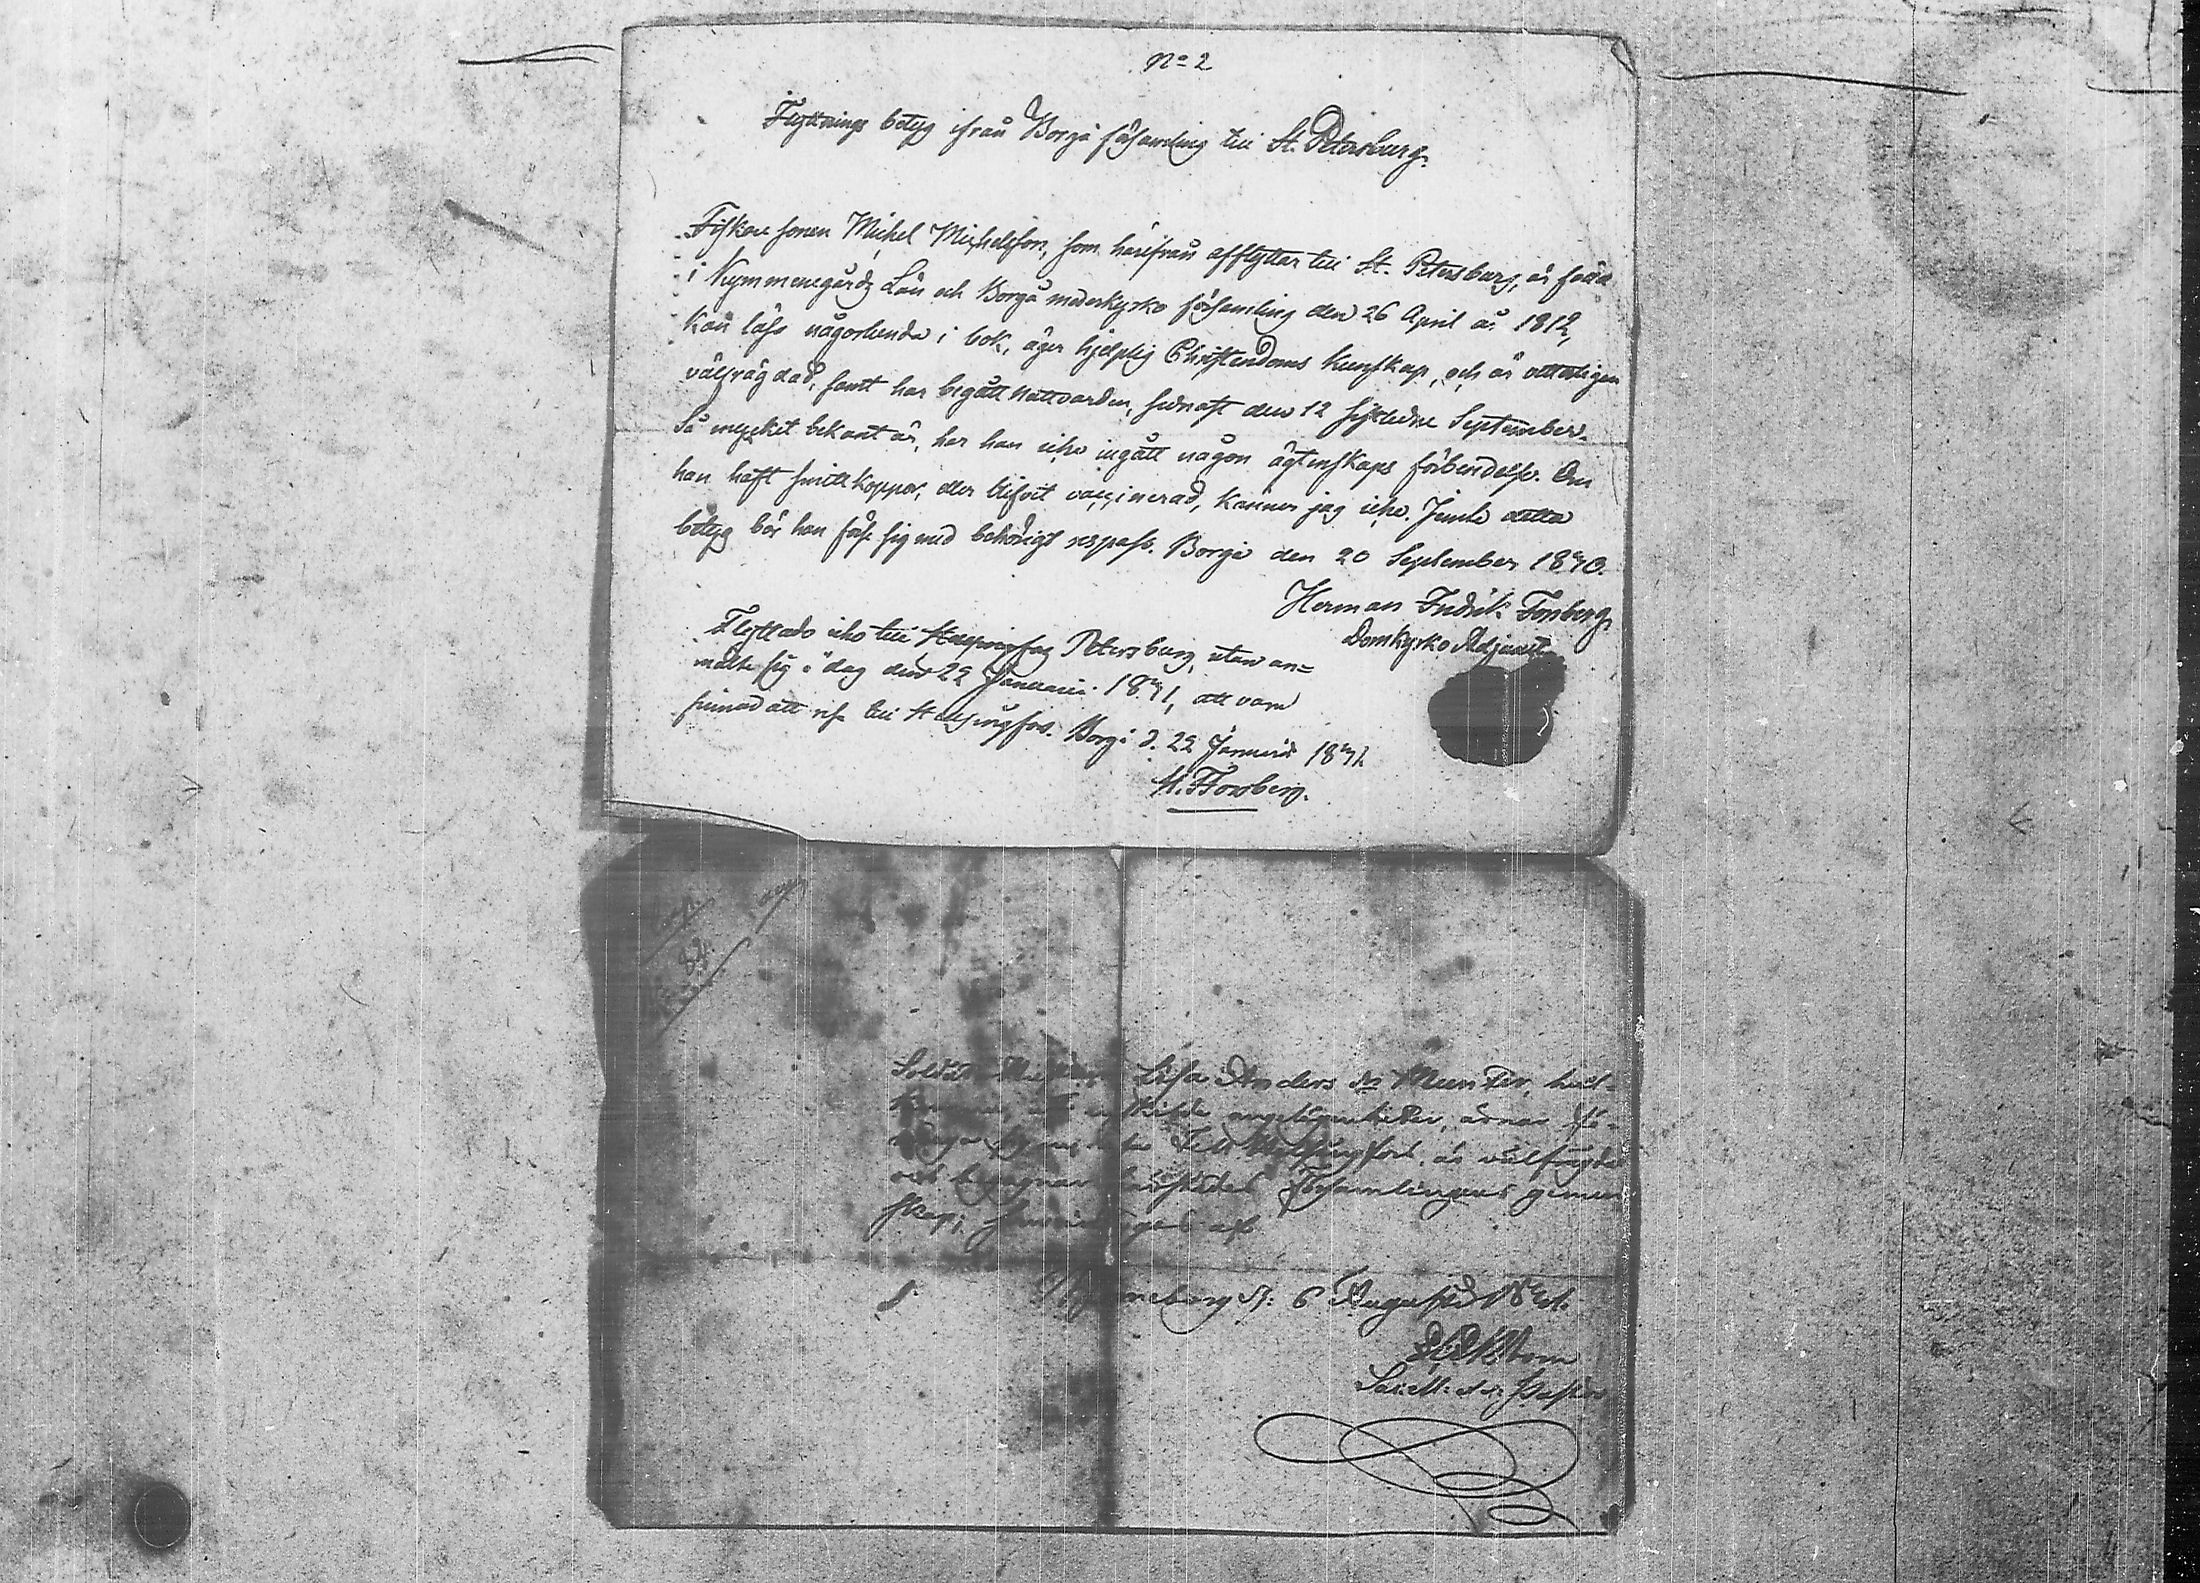 No 2
Flyttnings betyg ifrån Borgå församling till St. Petersburg.
Fiskare sonen Michel Michelsson, som härifrån afflyttar till St. Petersburg, är född
i Kymmenegårds Län och Borgå moderkyrko församling den 26 April år 1812,
kan läsa någorlunda i bok, äger hjelplig Christendoms kunskap, och är
välfrägdad, samt har begått nattvarden, sednast den 12 sistledne September.
Så mycket bekant är, har han icke ingått någon ägtenskaps förbindelse. Om
han haft smittkoppor, eller blifvit vaccinerad, känner jag icke. Jemte detta
betyg bör han förse sig med behörigt respass. Borgå den 20 September 1840.
Herman Fredrik Forsberg,
Domkyrko Adjunct
Flyttade icke till Petersburg, utan an=
mälte sig i dag den 22 Januarii 1841, att vara
sinnad att resa till Helsingfors. Borgå d. 22 Januarii 1841.
H. F Forsberg.
82.
Soldat Lisa Anders dr Munter,
angelägenheter, ärnar
till Helsingfors, är välfrägdad
och begagnar Församlingens gemen
skap;
d: 6 Augusti 1841.